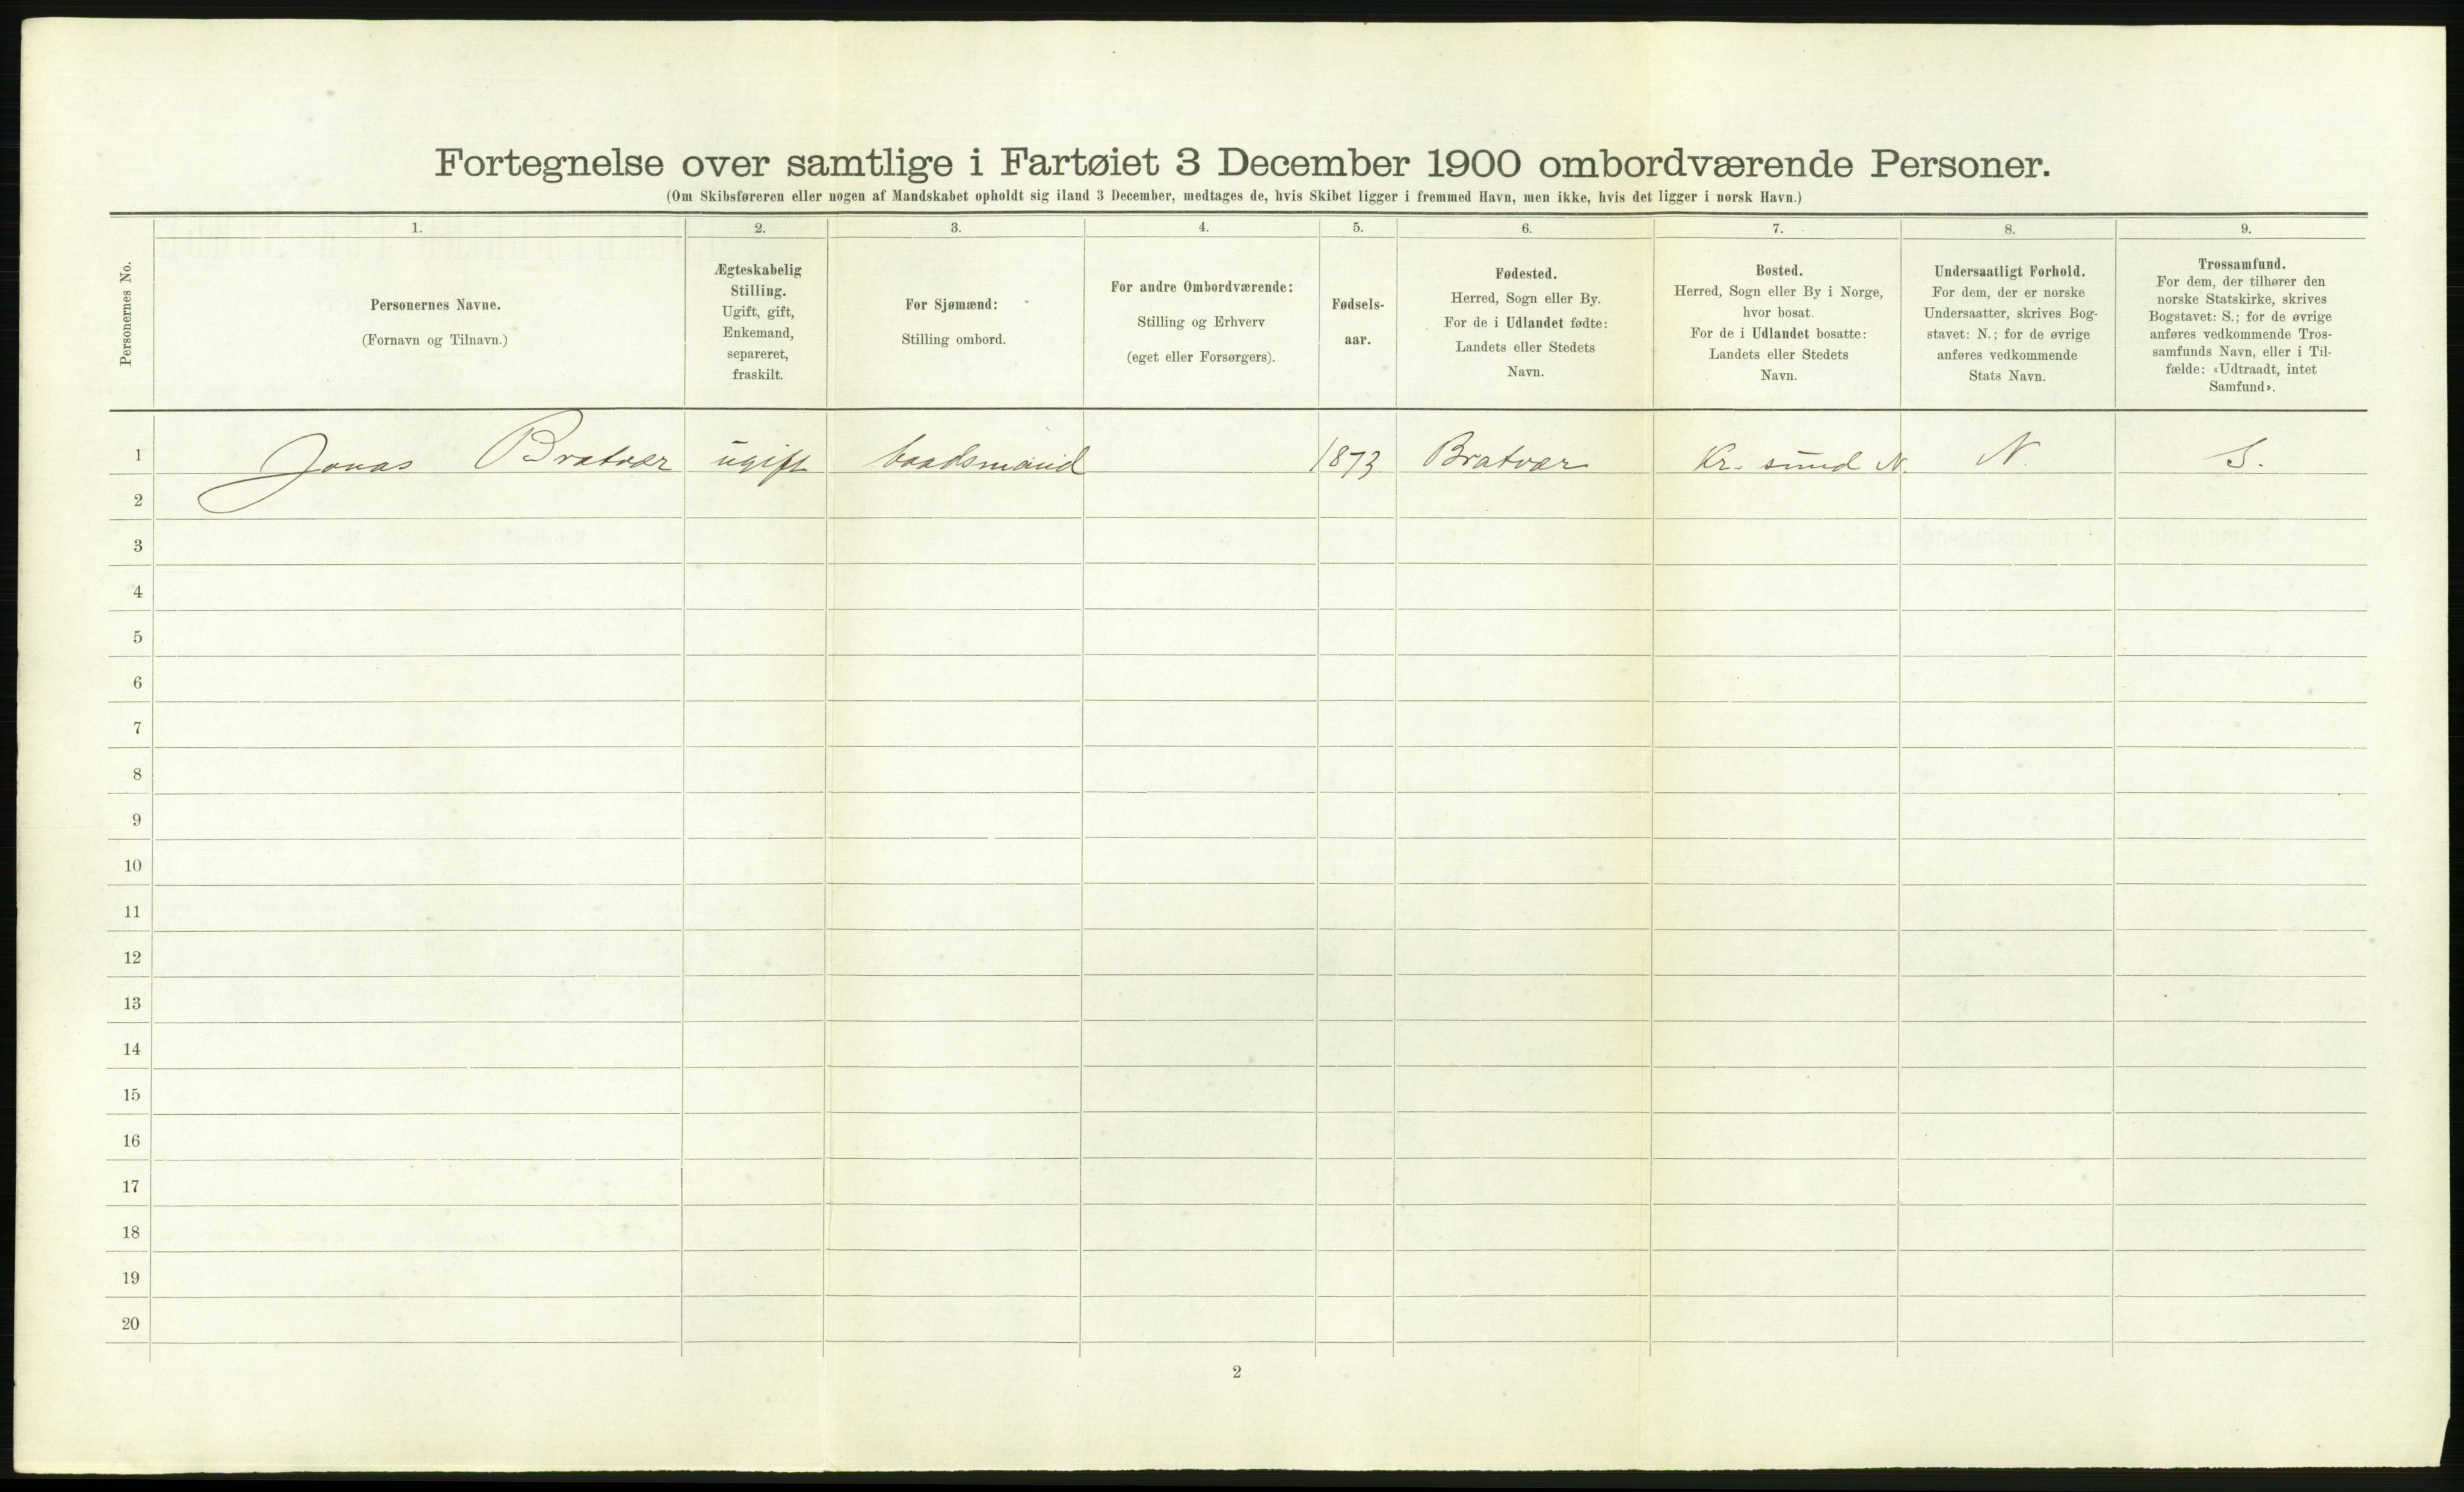 Fortegnelse over samtlige i Fartøiet 3 December 1900 ombordværende Personer.
(Om Skibsføreren eller nogen af Mandskabet opholdt sig iland 3 December, medtages de, hvis Skibet ligger i fremmed Havn, men ikke, hvis det ligger i norsk Havn.)
Personernes No.
1.
Personernes Navne.
(Fornavn og Tilnavn.)
2.
Ægteskabelig
Stilling.
Ugift, gift,
Enkemand,
separeret,
fraskilt.
3.
For Sjømænd:
Stilling ombord.
4.
For andre Ombordværende:
Stilling og Erhverv
(eget eller Forsørgers).
5.
Fødsels-
aar.
6.
Fødested.
Herred, Sogn eller By.
For de i Udlandet fødte:
Landets eller Stedets
Navn.
7.
Bosted.
Herred, Sogn eller By i Norge,
hvor bosat.
For de i Udlandet bosatte:
Landets eller Stedets
Navn.
8.
Undersaatligt Forhold.
For dem, der er norske
Undersaatter, skrives Bog-
stavet: N.; for de øvrige
anføres vedkommende
Stats Navn.
9.
Trossamfund.
For dem, der tilhører den
norske Statskirke, skrives
Bogstavet: S.; for de øvrige
anføres vedkommende Tros-
samfunds Navn, eller i Til-
fælde: «Udtraadt, intet
Samfund».
1 Jonas Bratvær ugift baadsmand 1873 Bratvær Kr. sund N. N. S.
2
3
4
5
6
7
8
9
10
11
12
13
14
15
16
17
18
19
20
2